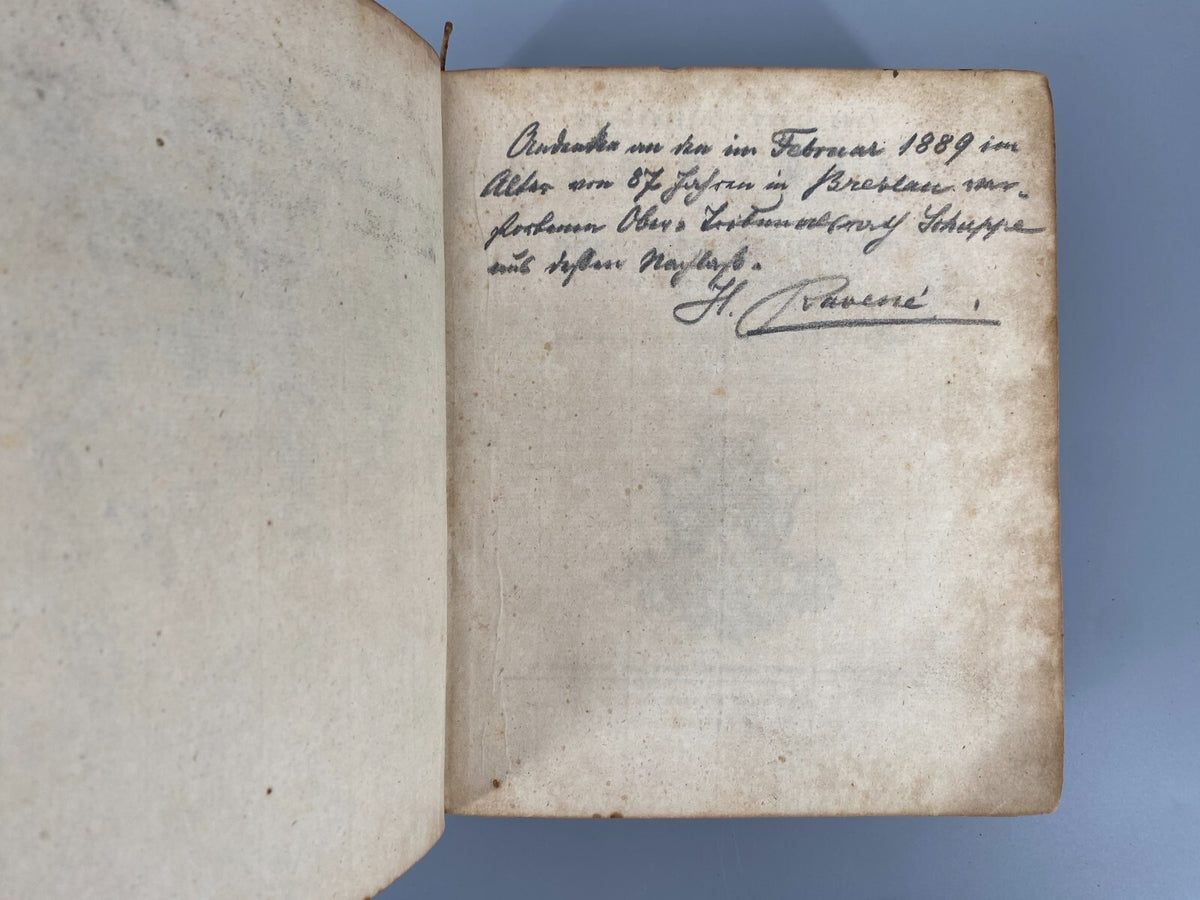 Andenken an den im Februar 1889 im
Alter von 87 Jahren in Breslau ver-
storbenen Ober-Tribunalsrath Schuppe
aus dessen Nachlaß.
H. Ravené.